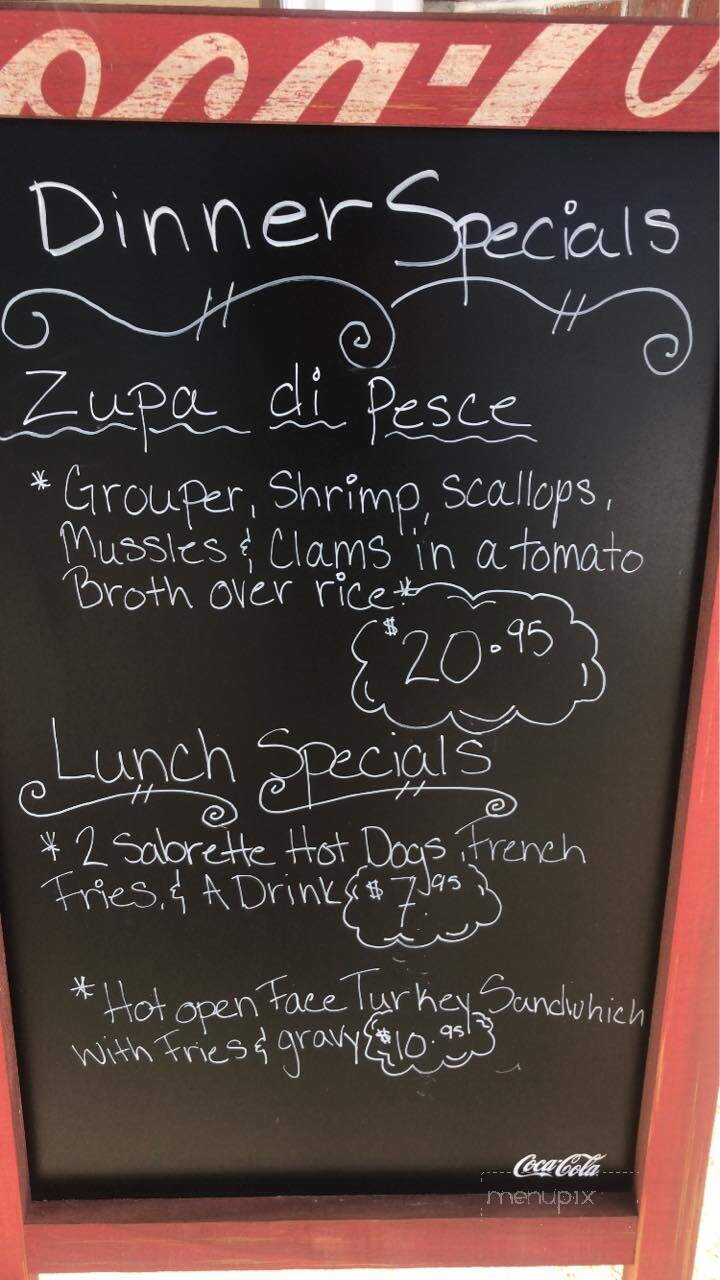 Dinner Specials
Zupa di Pesce
* Grouper, Shrimp, Scallops,
Mussles & Clams in a tomato
Broth over rice *
$20.95
Lunch Specials
* 2 Sabrette Hot Dogs, French
Fries, & A Drink $7.95
* Hot open Face Turkey Sandwhich
with Fries & gravy $10.95
Coca-Cola
menupix